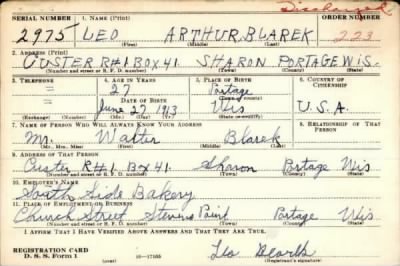 Discharged
SERIAL NUMBER 1. NAME (Print) ORDER NUMBER
2975 LEO ARTHUR BLAREK 223
(First) (Middle) (Last)
2. ADDRESS (Print)
CUSTER RH1 BOX 41. SHARON PORTAGE WIS.
(Number and street or R. F. D. number) (Town) (County) (State)
3. TELEPHONE 4. AGE IN YEARS 5. PLACE OF BIRTH 6. COUNTRY OF CITIZENSHIP
27 Portage
DATE OF BIRTH (Town or county)
June 27 1913 Wis U.S.A.
(Exchange) (Number) (Mo.) (Day) (Yr.) (State or country)
7. NAME OF PERSON WHO WILL ALWAYS KNOW YOUR ADDRESS 8. RELATIONSHIP OF THAT PERSON
Mr. Walter Blarek
(Mr., Mrs., Miss) (First) (Middle) (Last)
9. ADDRESS OF THAT PERSON
Custer RH1. Box 41. Sharon Portage Wis
(Number and street or R. F. D. number) (Town) (County) (State)
10. EMPLOYER'S NAME
South Side Bakery
11. PLACE OF EMPLOYMENT OR BUSINESS
Church Street Stevens Point Portage Wis
(Number and street or R. F. D. number) (Town) (County) (State)
I AFFIRM THAT I HAVE VERIFIED ABOVE ANSWERS AND THAT THEY ARE TRUE.
REGISTRATION CARD
D. S. S. Form 1 (over) 16—17105 Leo Blarek
(Registrant's signature)